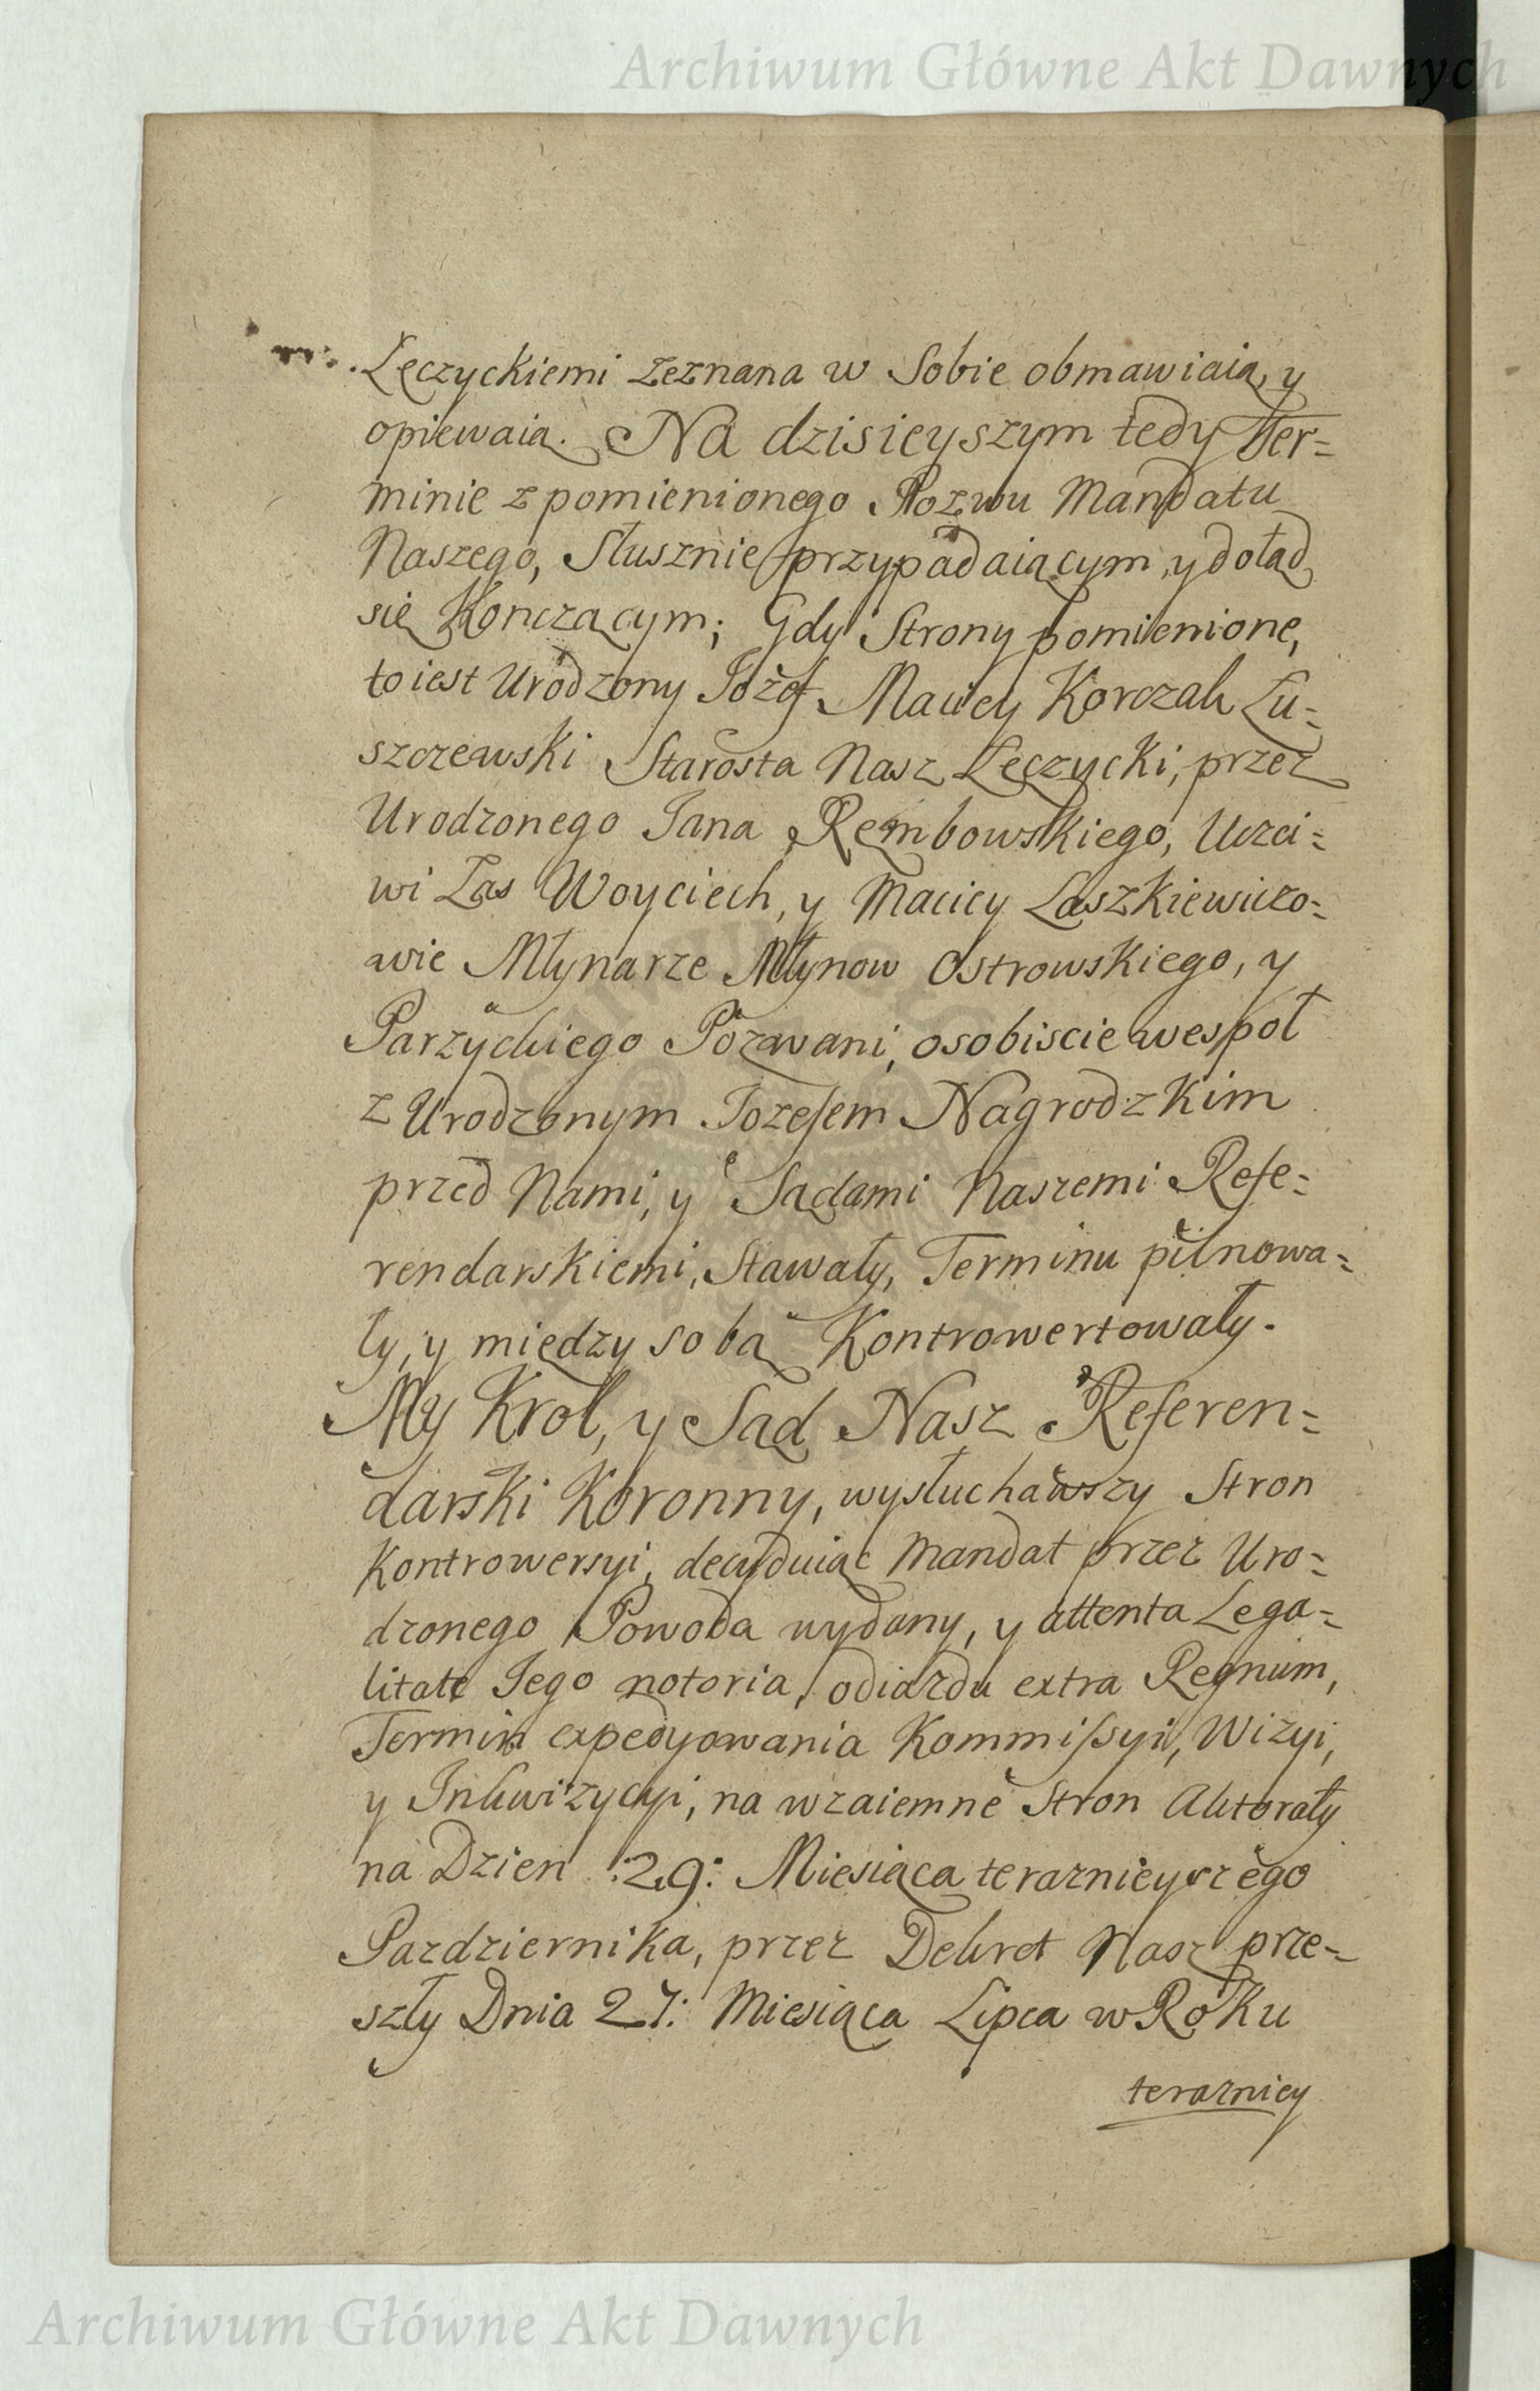 Archiwum Główne Akt Dawnych
Łęczyckiemi zeznana w Sobie obmawiaią, y
opiewaią. Na dzisieyszym tedy Ter=
minie z pomienionego Pozwu Mandatu
Naszego, Słusznie przypadaiącym, y dotąd
się Konczącym; Gdy Strony pomienione,
to iest Urodzony Jozef Maciey Korczak Lu=
szczewski Starosta Nasz Łęczycki, przez
Urodzonego Jana Rembowskiego, Uczci=
wi Zas Woyciech, y Maciey Laszkiewiczo=
wie Młynarze Młynow Ostrowskiego, y
Parzyckiego Pozwani, osobiscie wespoł
z Urodzonym Jozefem Nagrodzkim
przed Nami, y Sądami Naszemi Refe=
rendarskiemi, Stawały, Terminu pilnowa=
ły, y między sobą Kontrowertowały.
My Krol, y Sąd Nasz Referen=
darski Koronny, wysłuchawszy Stron
Kontrowersyi, decyduiąc Mandat przez Uro=
dzonego Powoda wydany, y attenta Lega=
litate Jego notoria, odiazdu extra Regnum,
Termin expedyowania Kommissyi, Wizyi,
y Inkwizycyi, na wzaiemne Stron Aktoraty
na Dzien :29: Miesiąca teraznieyszego
Pazdziernika, przez Dekret Nasz prze=
szły Dnia 27: Miesiąca Lipca w Roku
terazniey
Archiwum Główne Akt Dawnych